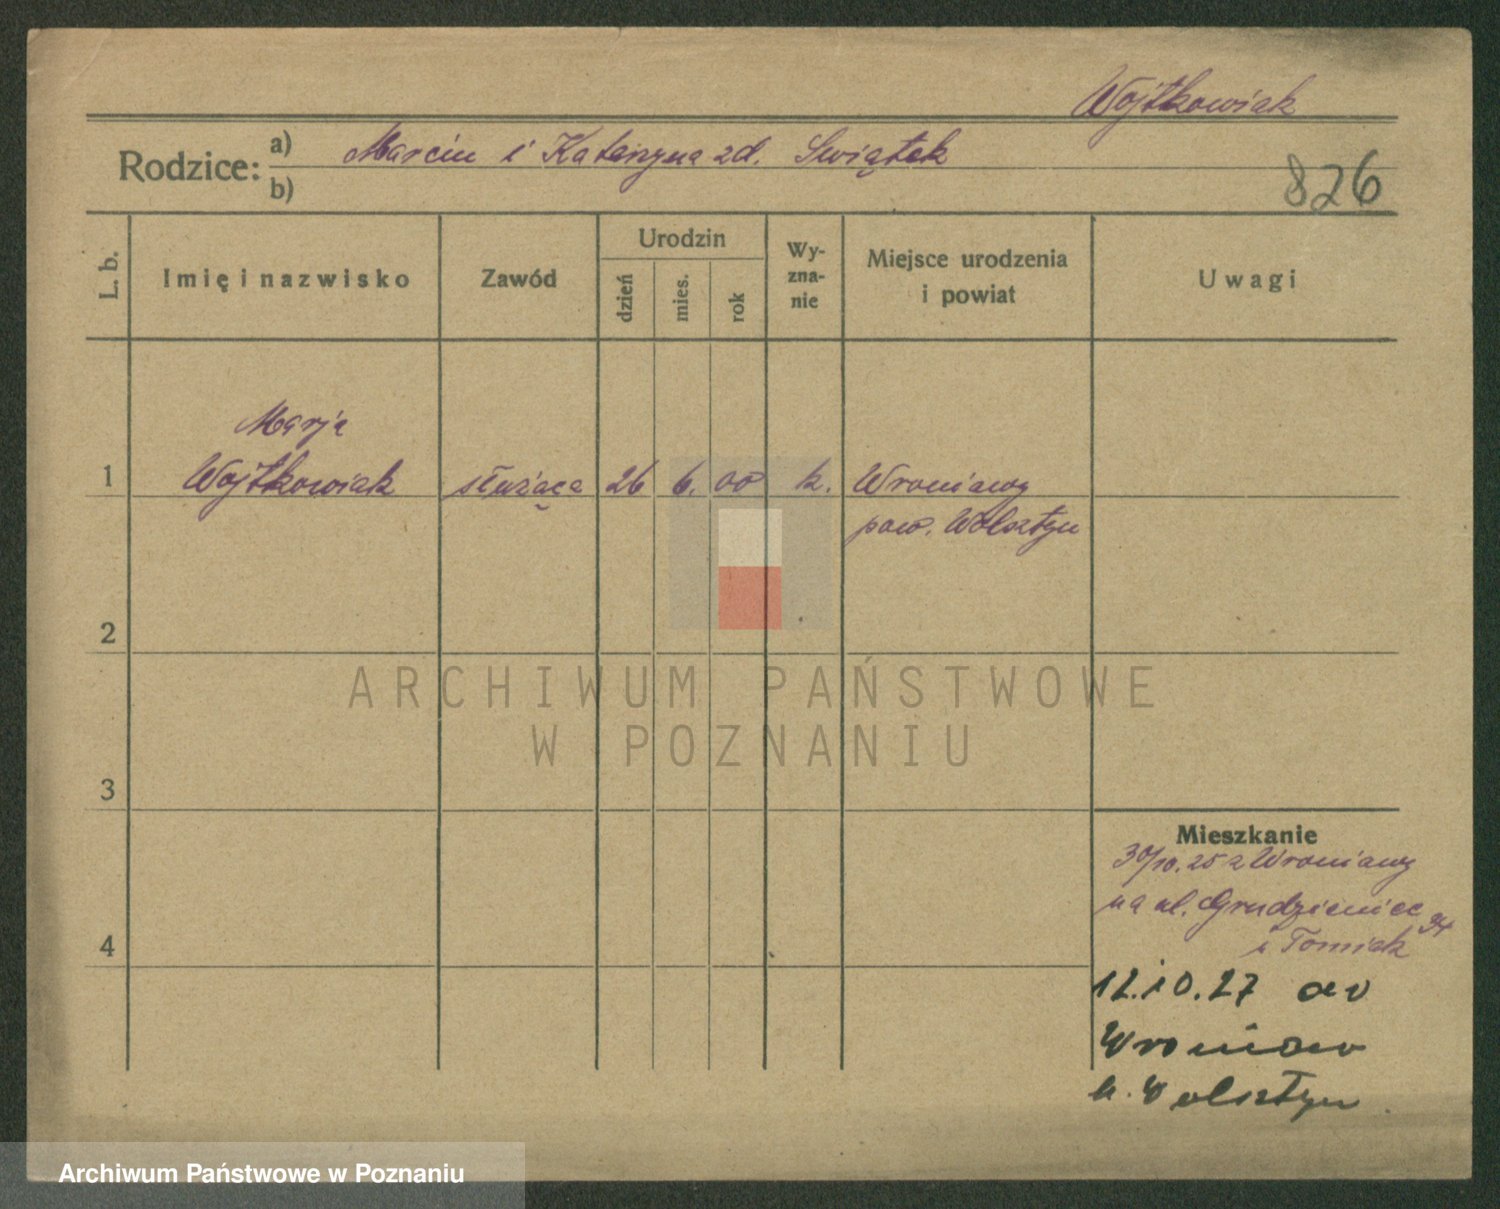 Wojtkowiak
Rodzice: a) Marcin i Katarzyna zd. Swiątek
b)
826
L. b.
Imię i nazwisko
Zawód
Urodzin
dzień
mies.
rok
Wy-
zna-
nie
Miejsce urodzenia
i powiat
Uwagi
Marja
1 Wojtkowiak służąca 26 6. 00 k. Wroniawy
pow. Wolsztyn
2
ARCHIWUM PAŃSTWOWE
W POZNANIU
3
Mieszkanie
30/10.25 z Wroniawy
na ul. Grudzieniec 94
4
u Tomiak
12.10.27 do
Wroniaw
k. Wolsztyn
Archiwum Państwowe w Poznaniu